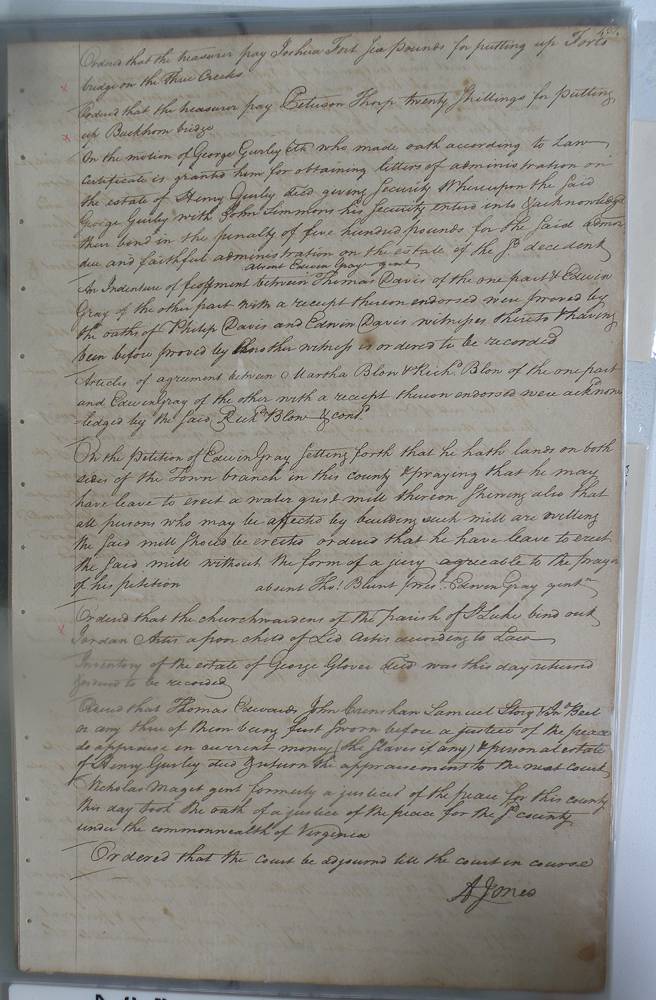 Ordered that the treasurer pay Joshua Fort Six pounds for putting up Forts
bridge on the Three Creeks
Ordered that the treasurer pay Peterson Thorp twenty Shillings for putting
up Buckhorn bridge
On the motion of George Gurley Etc who made oath according to Law
certificate is granted him for obtaining letters of administration on
the estate of Henry Gurley decd giving Security Whereupon the said
George Gurley with John Simmons his Security enterd into & acknowledged
their bond in the penalty of five hundred pounds for the said admors
due and faithful administration on the estate of the sd decedent
absent Edwin Gray gent
An Indenture of feoffment between Thomas Davis of the one part & Edwin
Gray of the other part with a receipt thereon endorsed were proved by
the oaths of Philip Davis and Edwin Davis witnesses thereto & having
been before proved by another witness is ordered to be recorded
Articles of agreement between Martha Blow & Richd Blow of the one part
and Edwin Gray of the other with a receipt thereon endorsed were acknow
-ledged by the said Richd Blow &
On the Petition of Edwin Gray Setting forth that he hath lands on both
sides of the Town branch in this county & praying that he may
have leave to erect a water grist mill thereon Shewing also that
all persons who may be affected by building such mill are willing
the said mill should be erected ordered that he have leave to erect
the said mill without the form of a jury agreeable to the prayer
of his petition absent Thos Blunt prest Edwin Gray gentn
Ordered that the churchwardens of the parish of St Luke bind out
Jordan Artis a poor child of Lid Artis according to Law
Inventory of the estate of George Glover decd was this day returned
& ordered to be recorded
Ordered that Thomas Edwards John Crenshaw Samuel Story & Jno Beel
or any three of them being first sworn before a justice of the peace
do appraise in current money (the slaves if any) & personal estate
of Henry Gurley decd & return the appraisement to the next Court
Nicholas Maget gent formerly a justice of the peace for this county
this day took the oath of a justice of the peace for the sd county
under the commonwealth of Virginia
Ordered that the court be adjournd till the court in course
A Jones